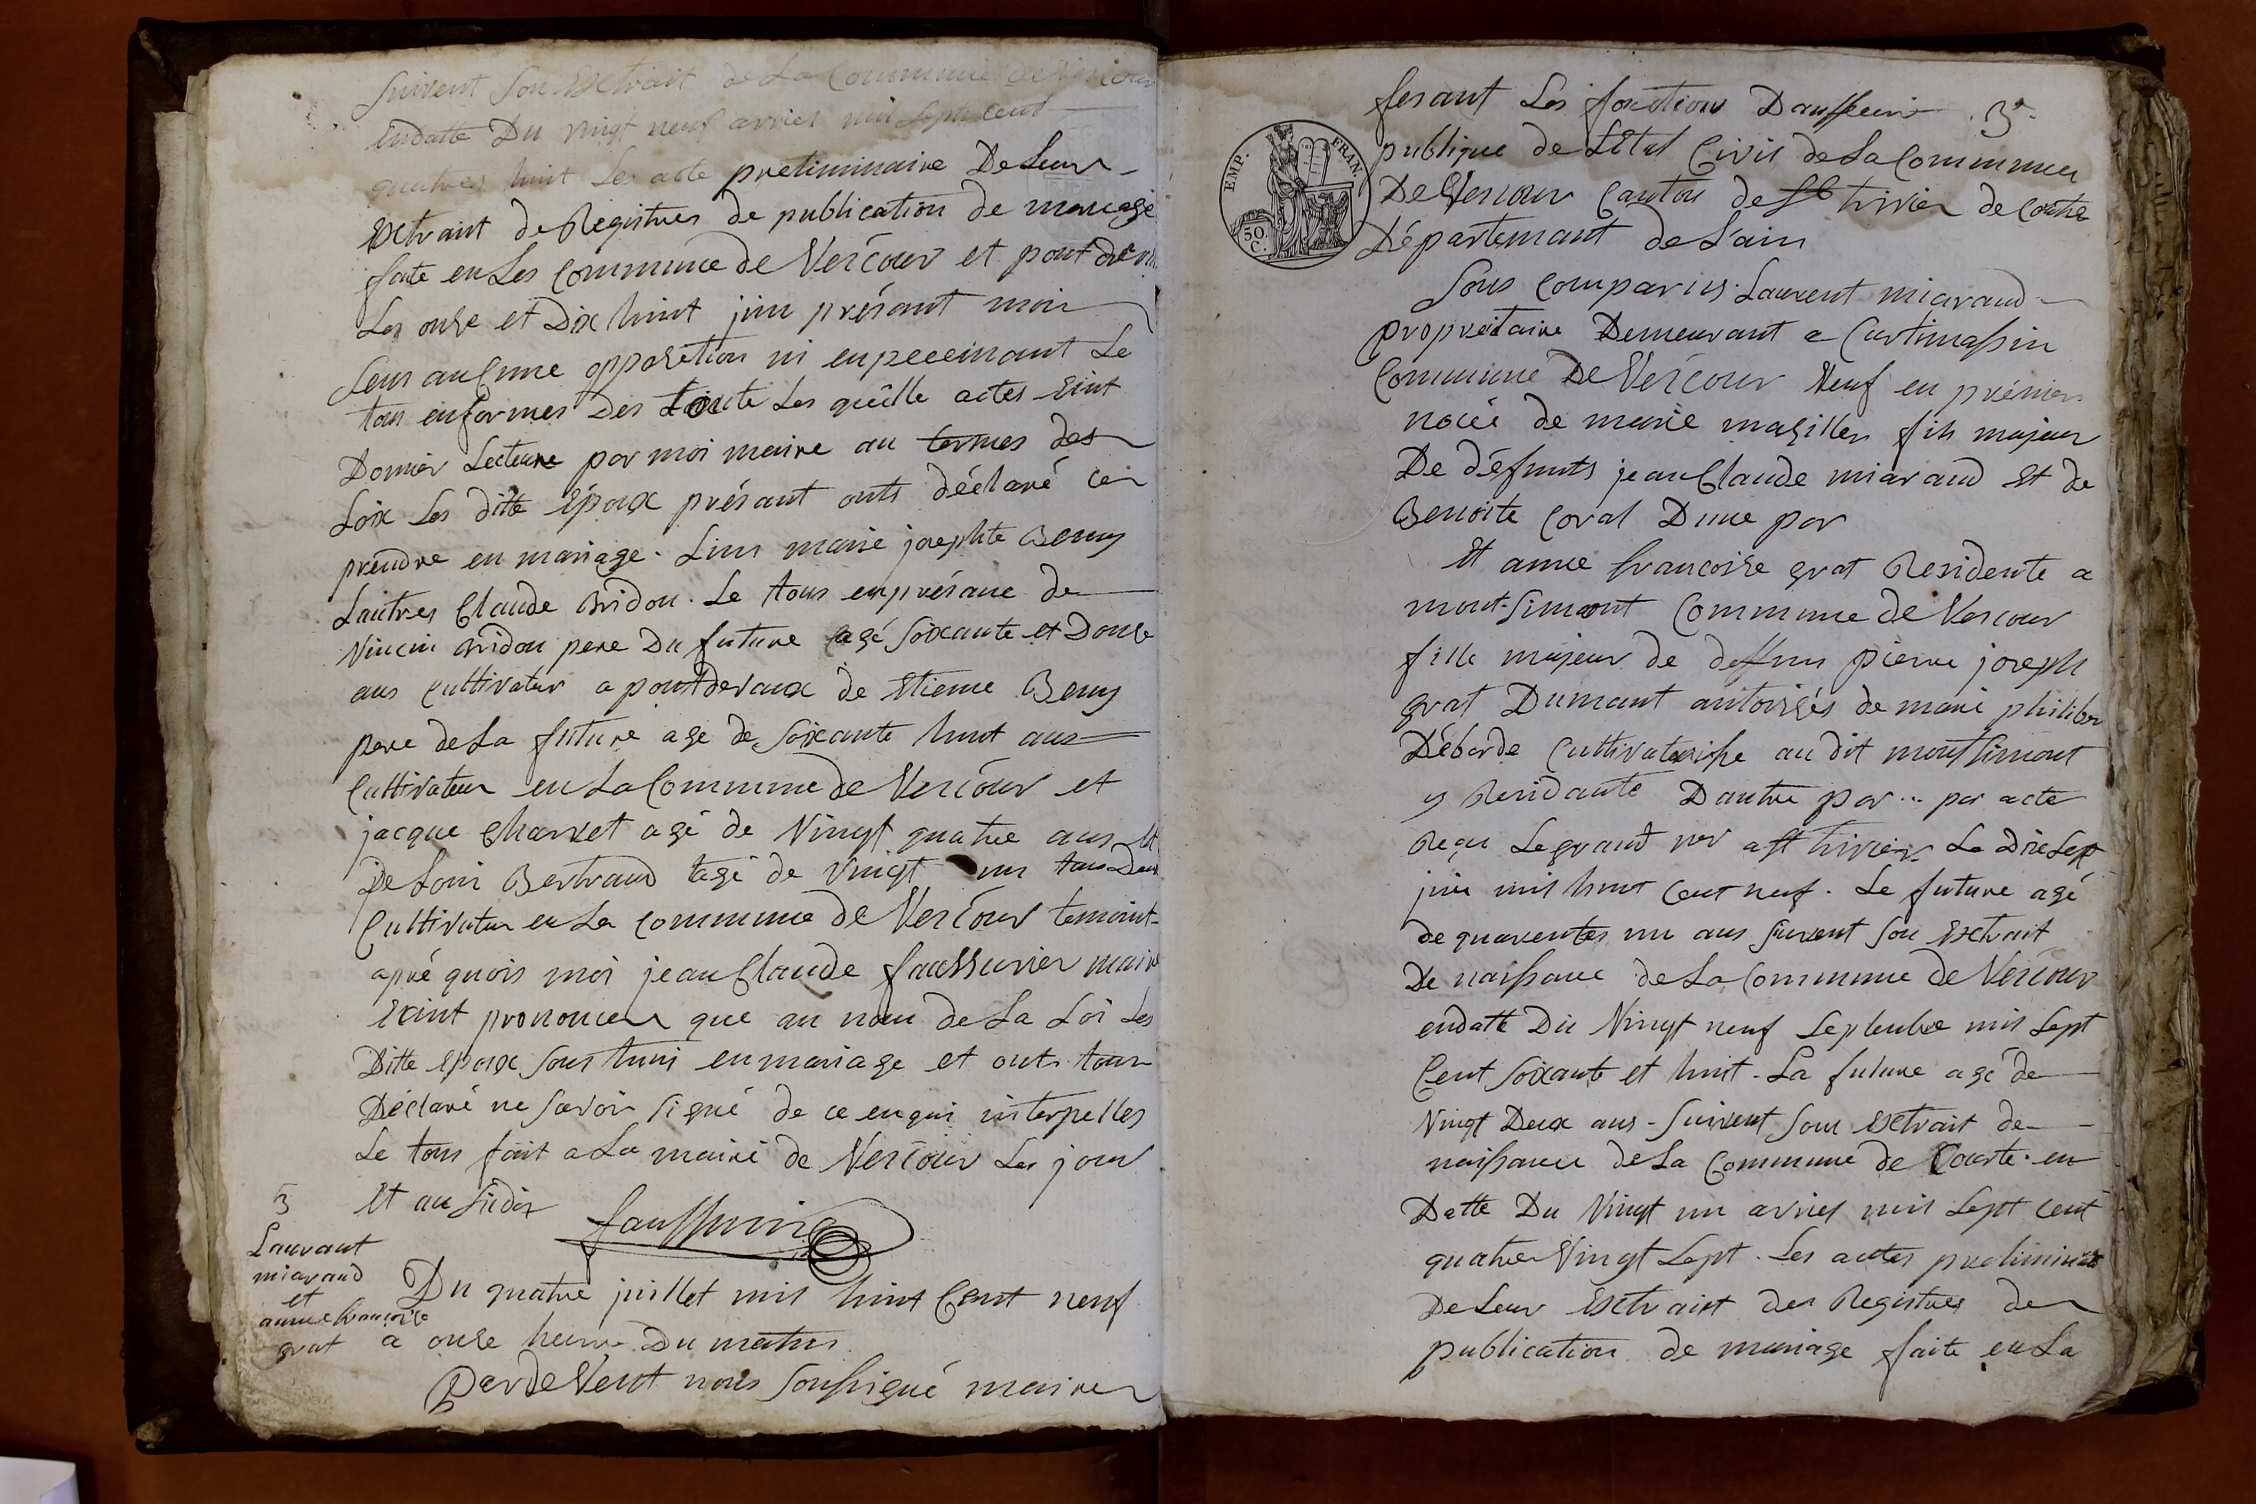 Suivent Son Extrait de La Commune de Vescour
Endatte Du vingt neuf avriel mil Sept cent
quatres huit Les acte preliminaire De Leur
Extraint de Registres de publication de mariage
faite en Les Commune de Vescour et pont de v
Les onse et Dix huint juin présant moin
Sens auCunne opposition ni enpeceinant Le
tous enformes des Loix Les quêlle actes eint
Donnier Lecteure par moi maire au termes des
Loix Les ditte Epoux présant onts déclaré ce
prendre en mariage. L'uns marie josephte Beny
Lautres Claude Bridon. Le tous enprésance de
Vincin Bridon pere Du future agé Soixante et Douse
ans Cultivateur a pontdevaux de Etienne Beny
pere de La future age de Soixante huit ans
Cultivateur en La Commune de Vescour et
jacque Charvet agé de Vingt quatre ans et
De Loui Bertrand agé de Vingt un tous Deux
Cultivateur en La commune de Vescour temoint
apré quois moi jean Claude faussurier maire
exint prononcer que au nom de La Loi Les
Ditte epoux Sous huni en mariage et onts tous
Déclaré ne Savoir Signé de ce enqui interpelles
Le tous fait a La mairé de Vescour Les jour
Et an Sudit
faussurier
5
Laurant
miaraud
et
anne francoise
grat
Du quatre juillet mil huit Cent neuf
a onse heure Du matin
Par De Vent nous Soussigné maire
fesant Les fonctions Dausseir 3e
publique de L'Etat Civil de La Commune
De Vescour Canton de St trivier de Courtes
Département de L'ain
EMP. FRAN.
50. C.
Sons comparus Laurent miaraud
propriétaire Demeurant a Curtimassin
Commune De Vescour Veuf en prémier
nocée de marie magillier fils majeur
De défunts jean Claude miaraud Et de
Benoite Coral D'une par
Et anne francoise grat Residente a
mont-Simont Commune de Vescour
fille majeur de deffuns pierre joseph
grat Dumant autorisés de marie philiber
Déborde Cultivaterisse au dit montsimont
y Residante Dautre par... par acte
Reçu Legrand nor a St trivier Le Dixsept
juin mil huit Cent neuf. Le future agé
de quarentes un ans Suivent Son Extrait
De naissance de La Commune de Vescour
endatte Du Vingt neuf Septenbre mil Sept
Cent Soixante et huit. La future agé de
Vingt Deux ans - Suivent Son Extrait de
naissance de La Commune de Courte. en
Datte Du Vingt un avriel mil Sept cent
quatre Vingt Sept. Les actes preliminaire
De Leur Extraist des Registres de
publication de mariage faite en La